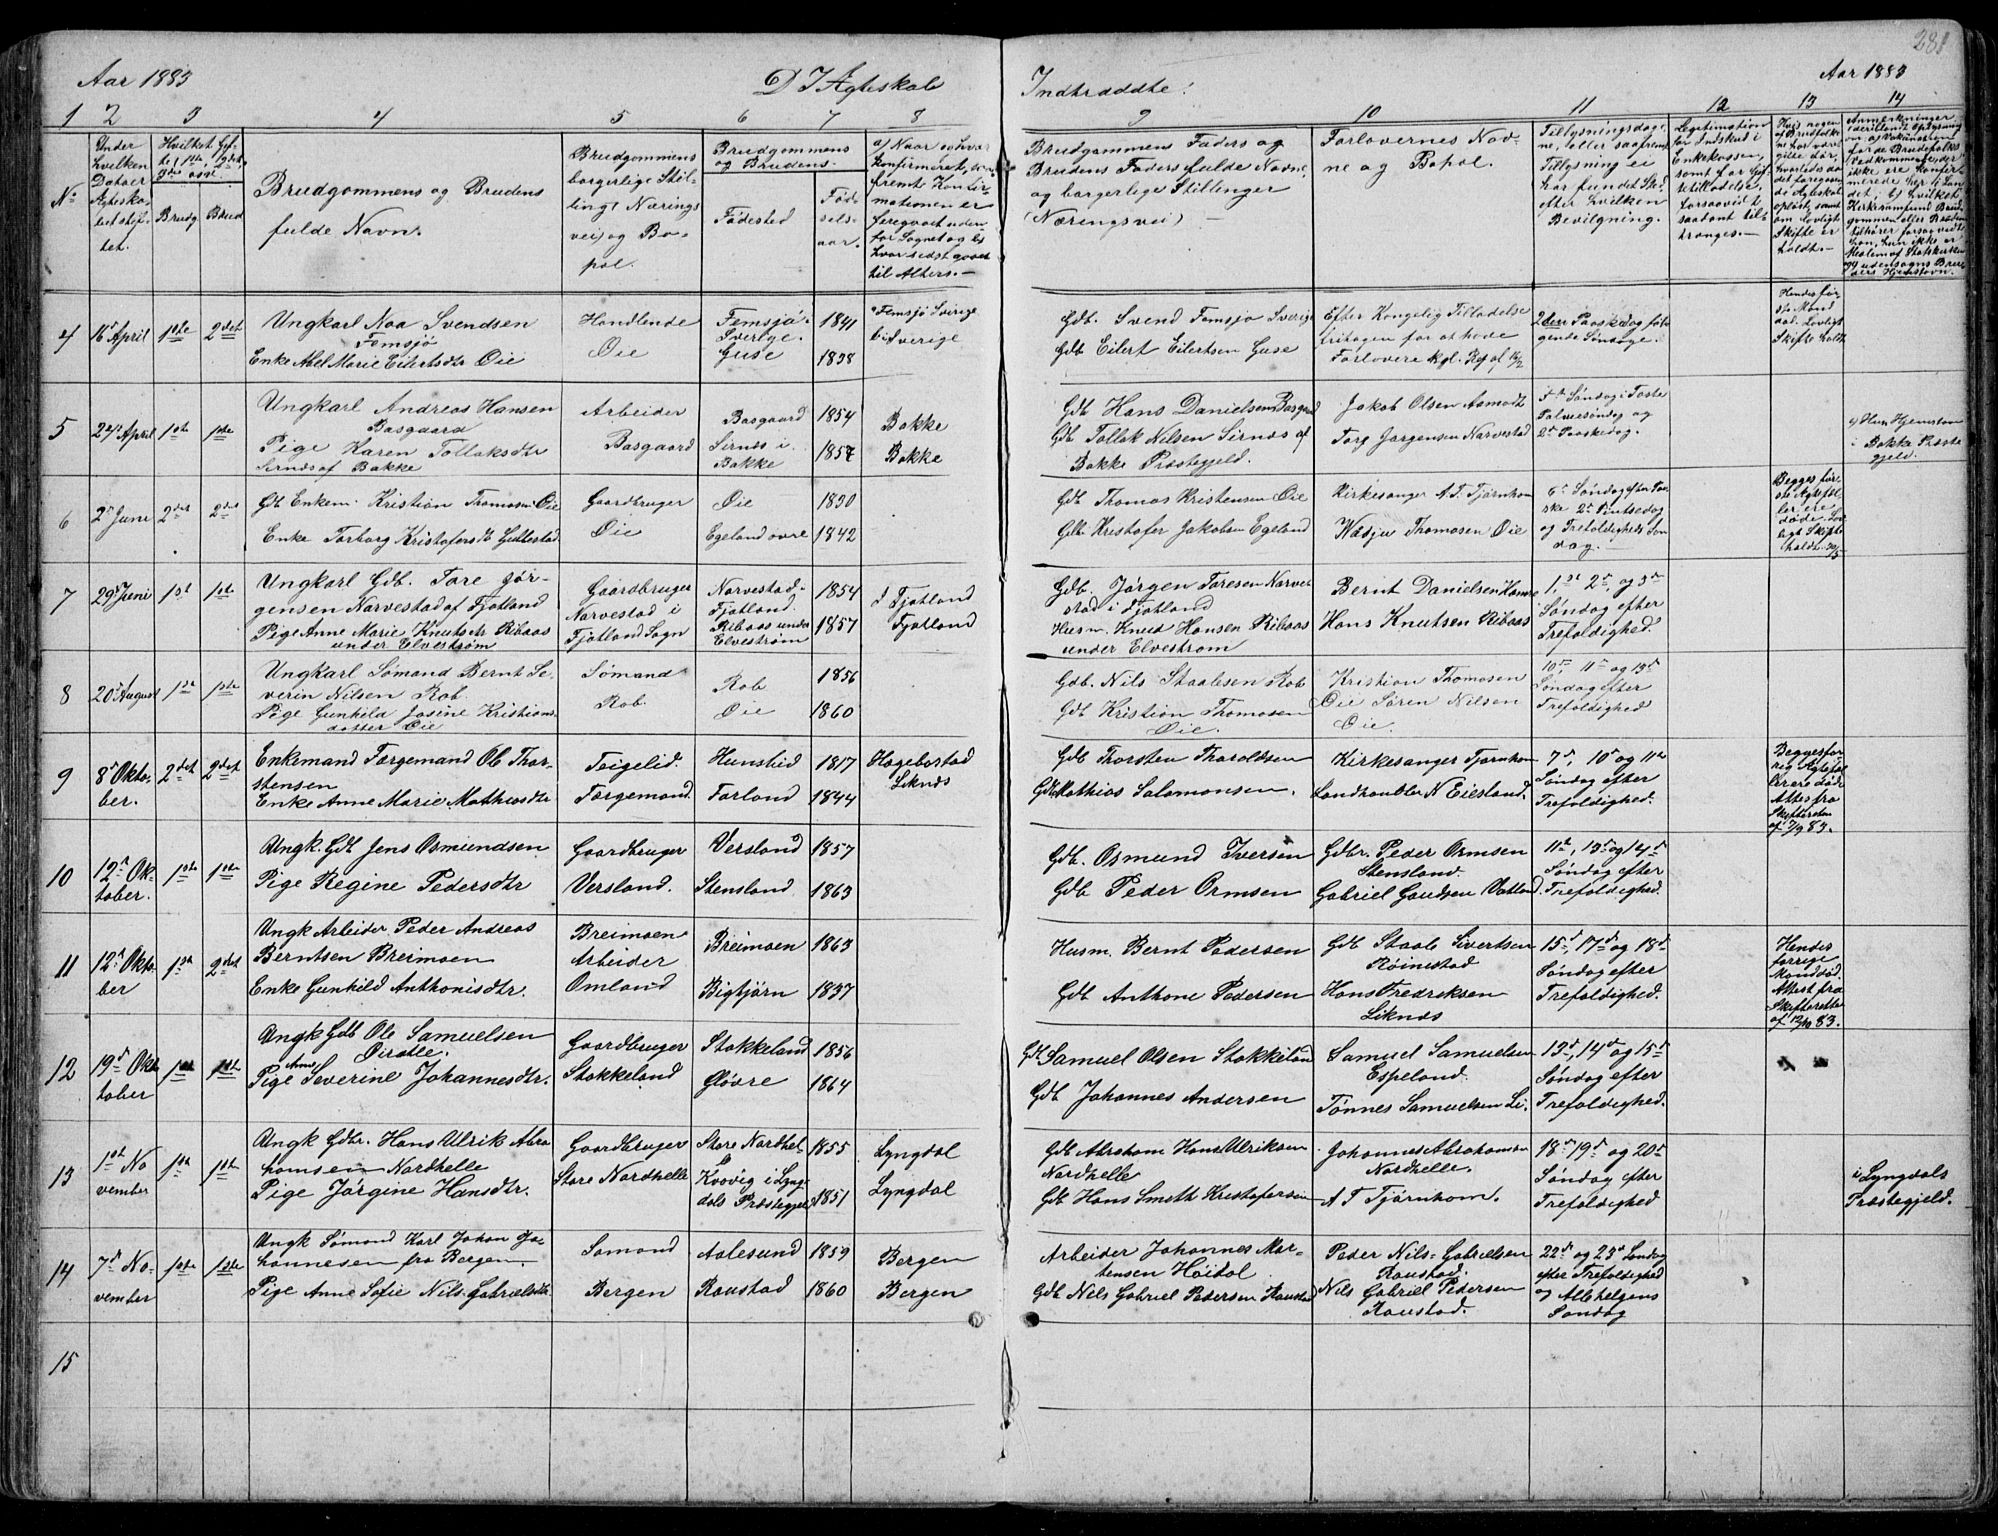 281
Aar 1883
D I Ægteskab
Indtraadte:
Aar 1883
1 2 3 4 5 6 7 8 9 10 11 12 13 14
No
Under hvilken Datoer Ægteskabet stiftet.
Hvilket Gifte (1ste, 2det, 3die osv).
Brudg
Brud
Brudgommens og Brudens fulde Navn.
Brudgommens borgerlige Stilling (Næringsvei) og Bopæl.
Brudgommens og Brudens
Fødested
Fødselsaar.
a) Naar og hvor konfirmeret, saafremt Konfirmationen er foregaaet udenfor Sognet og b) hvor sidst gaaet til Alters.
Brudgommens Faders og
Brudens Faders fulde Navne
og borgerlige Stillinger
(Næringsvei)
Forlovernes Navne og Bopæl.
Tillysningsdagene, eller saafremt Tillysning ei har fundet Sted efter hvilken Bevilgning.
Legitimation for Indskud i Enkekassen, samt for Giftetilladelse, forsaavidt saadant tiltrænges.
4
16 April
1ste
2det
Ungkarl Noa Svendsen
Femsjø
Enke Abel Marie Eilertsdtr Øie
Handlende
Øie
Femsjø
Sverige.
Guse
1841
1838
Femsjø Sverige
b) Sverige
Gdb. Svend Femsjø Sverige
Gdb Eilert Eilertsen Guse
Efter Kongelig Tilladelse
fritagen for at have
Forlovere
2den Paaskedag følgende Søndage.
5
24 April
1ste
1ste
Ungkarl Andreas Hansen
Basgaard
Pige Karen Tollaksdtr
Sirnæs af Bakke
Arbeider
Basgaard
Basgaard
Sirnæs i
Bakke
1854
1857
Bakke
Bakke
Gdb Hans Danielsen Basgaard
Gdb Tollak Nilsen Sirnæs af
Bakke Præstegjeld.
Jakob Olsen Aamodt
Torg Jørgensen Narvestad
5te Søndag i Faste
Palmesøndag og
2d Paaskedag.
Hun Hjemstavn
i Bakke Præste
gjeld.
6
2 Juni
2det
2det
Gdb Enkem. Kristian Thomasen Øie
Enke Torborg Kristofersdtr Gullestad
Gaardbruger
Øie
Øie
Egeland øvre
1830
1842
Gdb Thomas Kristensen Øie
Gdb Kristofer Jakobsen Egeland
Kirkesanger A. T. Tjørnhom
Thomasen Øie
6te Søndag efter Paaske 2d Pintsedag
og Trefoldigheds Søndag.
7
29 Juni
1ste
1ste
Ungkarl Gdb. Tore Jørgensen Narvestad af Fjotland
Pige Anne Marie Knutsdtr Ribaas
under Elvestrøm
Gaardbruger
Narvestad i
Fjotland Sogn
Narvestad
Fjotland
Ribaas under
Elvestrøm
1854
1857
Fjotland
Fjotland
Gdb. Jørgen Toresen Narvestad i Fjotland
Husm. Knud Hansen Ribaas
under Elvestrøm
Bernt Danielsen
Hans Knutsen Ribaas
1ste 2d, og 3de
Søndag efter
Trefoldighed.
8
20 August
1ste
1ste
Ungkarl Sømand Bernt Severin Nilsen Rob.
Pige Gunhild Josine Kristiansdatter Øie
Sømand
Rob.
Rob
Øie
1856
1860
Gdb. Nils Staalesen Rob
Gdb Kristian Thomasen
Øie.
Kristian Thomasen
Øie Søren Nilsen
Øie.
10de 11te og 13d
Søndag efter
Trefoldighed
9
8 Oktober.
2det
2det
Enkemand Torgemand Ol Thorstensen
Enke Anne Marie Mathiasdtr
Teigelid.
Torgemand.
Hunshid
Forland
1817
1844
Hægebostad
Liknæs
Gdb Thorsten Tharaldsen
Gdb Mathias Salomonsen.
Kirkesanger Tjørnhom
Landhandler N Eiesland.
7d, 10d og 11te
Søndag efter
Trefoldighed.
10
12 Oktober.
1ste
1ste
Ungk. Gdb Jens Osmundsen
Pige Regine Pedersdtr
Gaardbruger
Versland.
Versland
Stensland.
1857
1863
Gdb. Osmund Iversen
Gdb Peder Ormsen
Gdbr. Peder Ormsen
Stensland.
Gabriel Gaudsen Vatland
11te, 13d og 14d
Søndag efter
Trefoldighed.
11
12 Oktober
1ste
2det
Ungk Arbeider. Peder Andreas
Berntsen Breimoen
Enke Gunhild Anthonisdtr.
Breimoen
Arbeider
Omland
Breimoen
Bigtjørn
1863
1837
Husm. Bernt Pedersen
Gdb Anthone Pedersen
Gdb Staale Sivertsen
Røinestad
Hans Fredriksen
Liknæs
15d, 17d og 18d
Søndag efter
Trefoldighed.
Hendes
forrige
Mand død.
Attest fra
Skifteretten
af 12/10 83.
12
19 Oktober
1ste
1ste
Ungk Gdb Ole Samuelsen
Pige Anne Severine Johannesdtr.
Gaardbruger
Stokkeland
Stokkeland
Gløvre
1856
1864
Gdb Samuel Olsen Stokkeland
Gdb Johannes Andersen
Samuel Samuelsen
Espeland.
Tønnes Samuelsen Li.
13d, 14d og 15d
Søndag efter
Trefoldighed.
13
1ste November
1ste
1ste
Ungk Gdbr. Hans Ulrik Abrahamsen Nordhelle
Pige Jørgine Hansdtr.
Gaardbruger
Store Nordhelle
Store Nordhelle
Kvavig i Lyngdals Præstegjeld
1855
1851
Lyngdal
Lyngdal
Gdb Abraham Hans Ulriksen
Nordhelle
Gdb Hans Smeth Kristofersen
Johannes Abrahamsen
Nordhelle.
A T Tjørnhom.
18d 19d og 20d
Søndag efter
Trefoldighed
i Lyngdals
Præstegjeld.
14
7 November
1ste
1ste
Ungk Sømand Karl Johan Johannesen fra Bergen.
Pige Anne Sofie Nils Gabrielsdtr
Sømand
Bergen
Aalesund
Raustad
1859
1860
Bergen
Bergen
Arbeider Johannes Martensen Høidal
Gdb Nils Gabriel Pedersen Raustad
Peder Nils-Gabrielsen
Raustad.
Nils Gabriel Pedersen
Raustad.
22d og 23d Søndag
efter Trefoldighed
og Allehelgens
Søndag
15